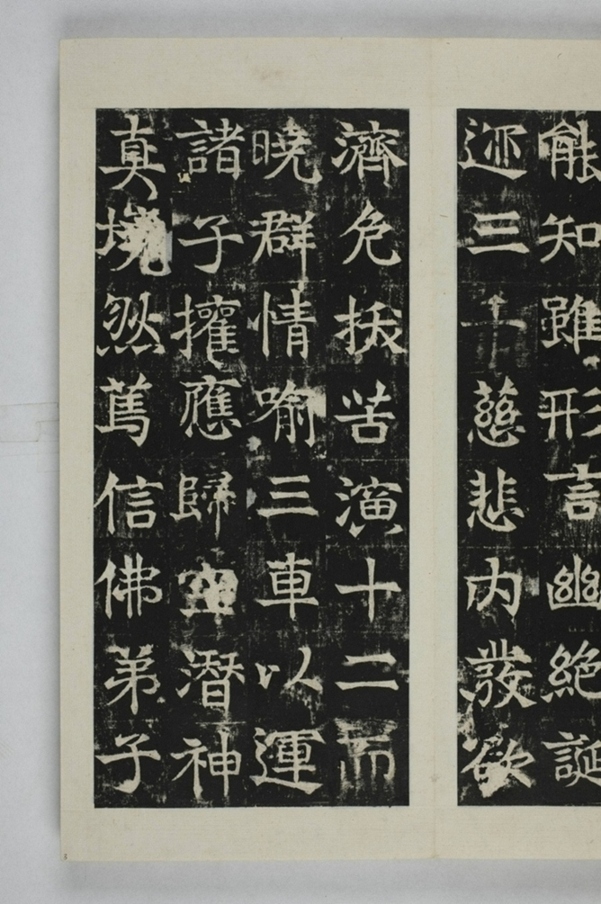 能知雖形言幽絶誕
迹三千慈悲内發欲
濟危拔苦演十二而
曉群情喻三車以運
諸子擁應歸空潛神
真境然篤信佛弟子